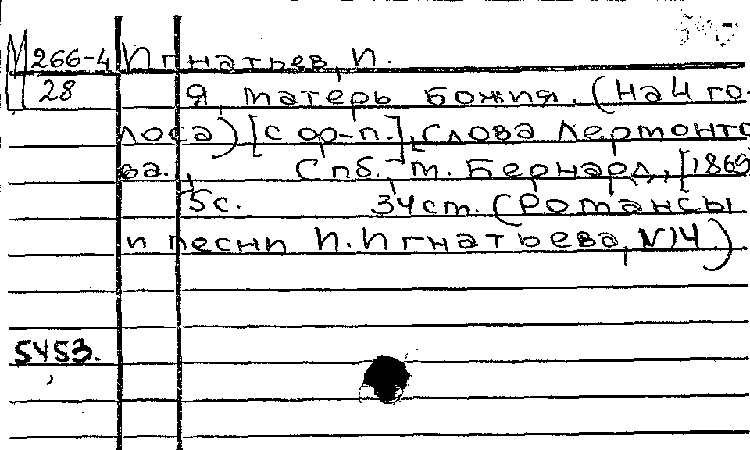 М 266-4 Игнатьев, И.
28 Я, матерь божия. (На 4 го-
лоса) [с ор-п.]. Слова Лермонто-
ва.
Спб., М. Бернард, [1869
5с. 34см. (Романсы
и песни И. Игнатьева, №14)
5453.